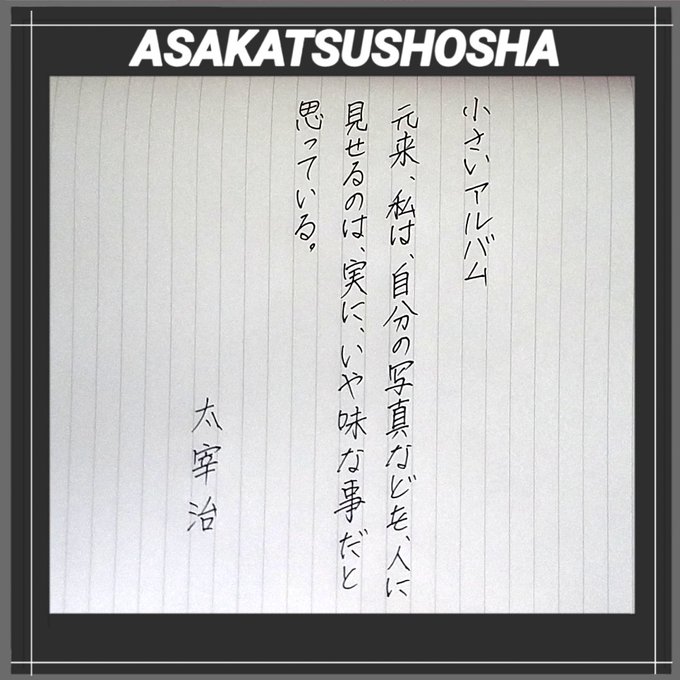 ASAKATSUSHOSHA
小さいアルバム
元来、私は、自分の写真などを、人に
見せるのは、実に、いや味な事だと
思っている。
太宰治